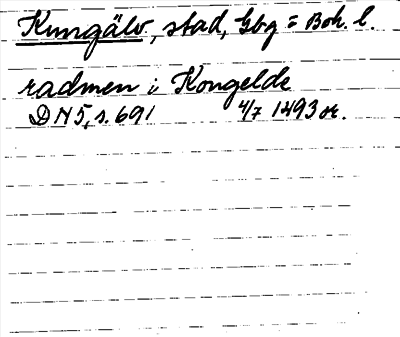 Kungälv, stad, Gbg = Boh. l.
radmen i Kongelde
DN 5, s. 691 4/7 1493 or.